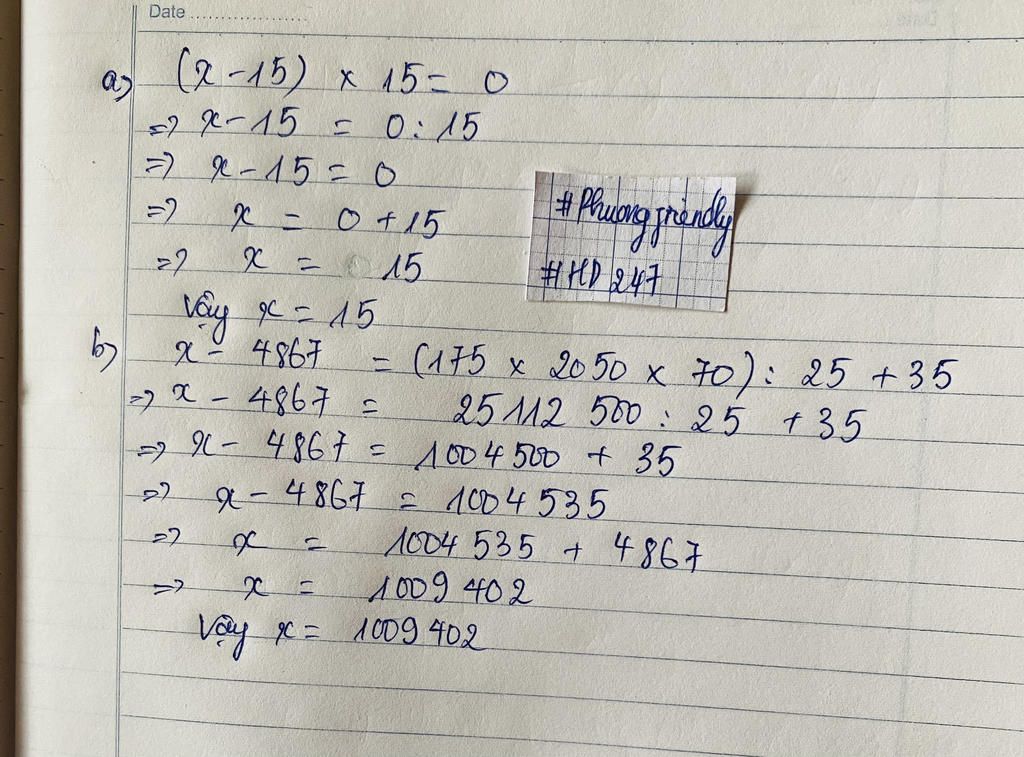 Date
a) (x - 15) × 15 = 0
=> x - 15 = 0 : 15
=> x - 15 = 0
=> x = 0 + 15
=> x = 15
Vậy x = 15
#Phuongfriendly
#HD247
b) x - 4867 = (175 × 2050 × 70) : 25 + 35
=> x - 4867 = 25112500 : 25 + 35
=> x - 4867 = 1004500 + 35
=> x - 4867 = 1004535
=> x = 1004535 + 4867
=> x = 1009402
Vậy x = 1009402